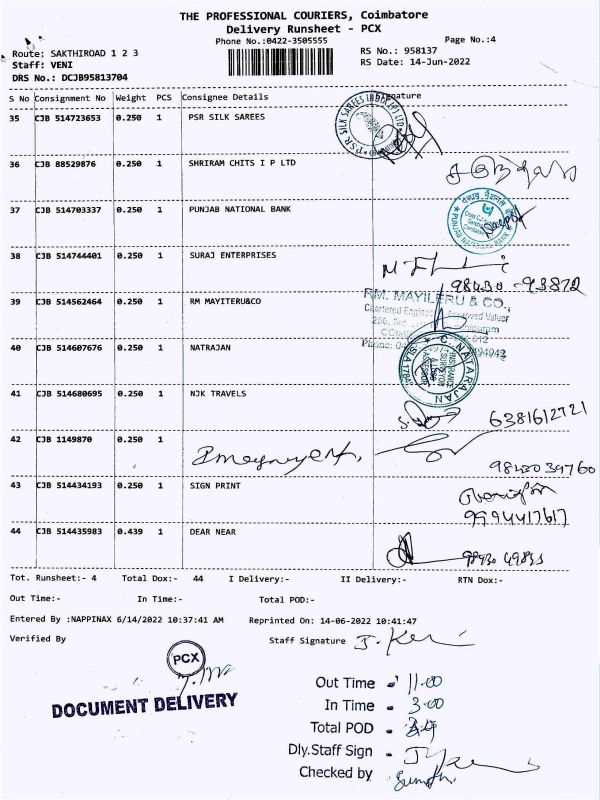 THE PROFESSIONAL COURIERS, Coimbatore
Delivery Runsheet - PCX
Phone No.:0422-3505555
Page No.:4
Route: SAKTHIROAD 1 2 3
RS No.: 958137
Staff: VENI
RS Date: 14-Jun-2022
DRS No.: DCJB95813704
S No Consignment No Weight PCS Consignee Details Signature
35 CJB 514723653 0.250 1 PSR SILK SAREES
PSR SILK SAREES INDIA (P) LTD
36 CJB 88529876 0.250 1 SHRIRAM CHITS I P LTD
37 CJB 514703337 0.250 1 PUNJAB NATIONAL BANK
PUNJAB NATIONAL BANK
38 CJB 514744401 0.250 1 SURAJ ENTERPRISES
98430-93872
39 CJB 514562464 0.250 1 RM MAYITERU&CO
RM. MAYILERU & CO.,
Chartered Engineer Approved Valuer
40 CJB 514607676 0.250 1 NATRAJAN
C. NATARAJAN
INSURANCE
SURVEYOR
41 CJB 514680695 0.250 1 NJK TRAVELS
6381612721
42 CJB 1149870 0.250 1
9843034760
43 CJB 514434193 0.250 1 SIGN PRINT
9994417617
44 CJB 514435983 0.439 1 DEAR NEAR
Tot. Runsheet:- 4 Total Dox:- 44 I Delivery:- II Delivery:- RTN Dox:-
Out Time:- In Time:- Total POD:-
Entered By :NAPPINAX 6/14/2022 10:37:41 AM Reprinted On: 14-06-2022 10:41:47
Verified By Staff Signature
PCX
DOCUMENT DELIVERY
Out Time - 11.00
In Time - 3.00
Total POD - 44
Dly.Staff Sign -
Checked by